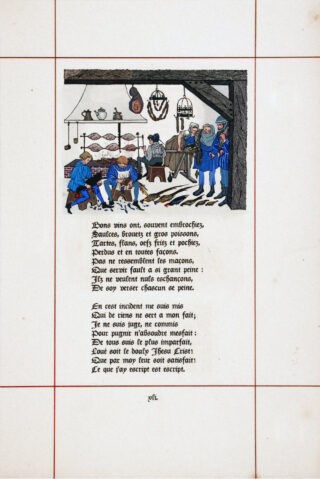 Bons vins ont, souvent embrochiez,
Saulces, brouetz et gros poissons,
Tartes, flans, oefz fritz et pochiez,
Perdus et en toutes façons.
Pas ne ressemblent les maçons,
Que servir fault a si grant peine :
Ilz ne veulent nuls eschançons,
De soy verser chascun se peine.
En cest incident me suis mis
Qui de riens ne sert a mon fait;
Je ne suis juge, ne commis
Pour pugnir n'absoudre mesfait:
De tous suis le plus imparfait,
Loué soit le doulx Jhesu Crist!
Que par moy leur soit satisfait!
Ce que j'ay escript est escript.